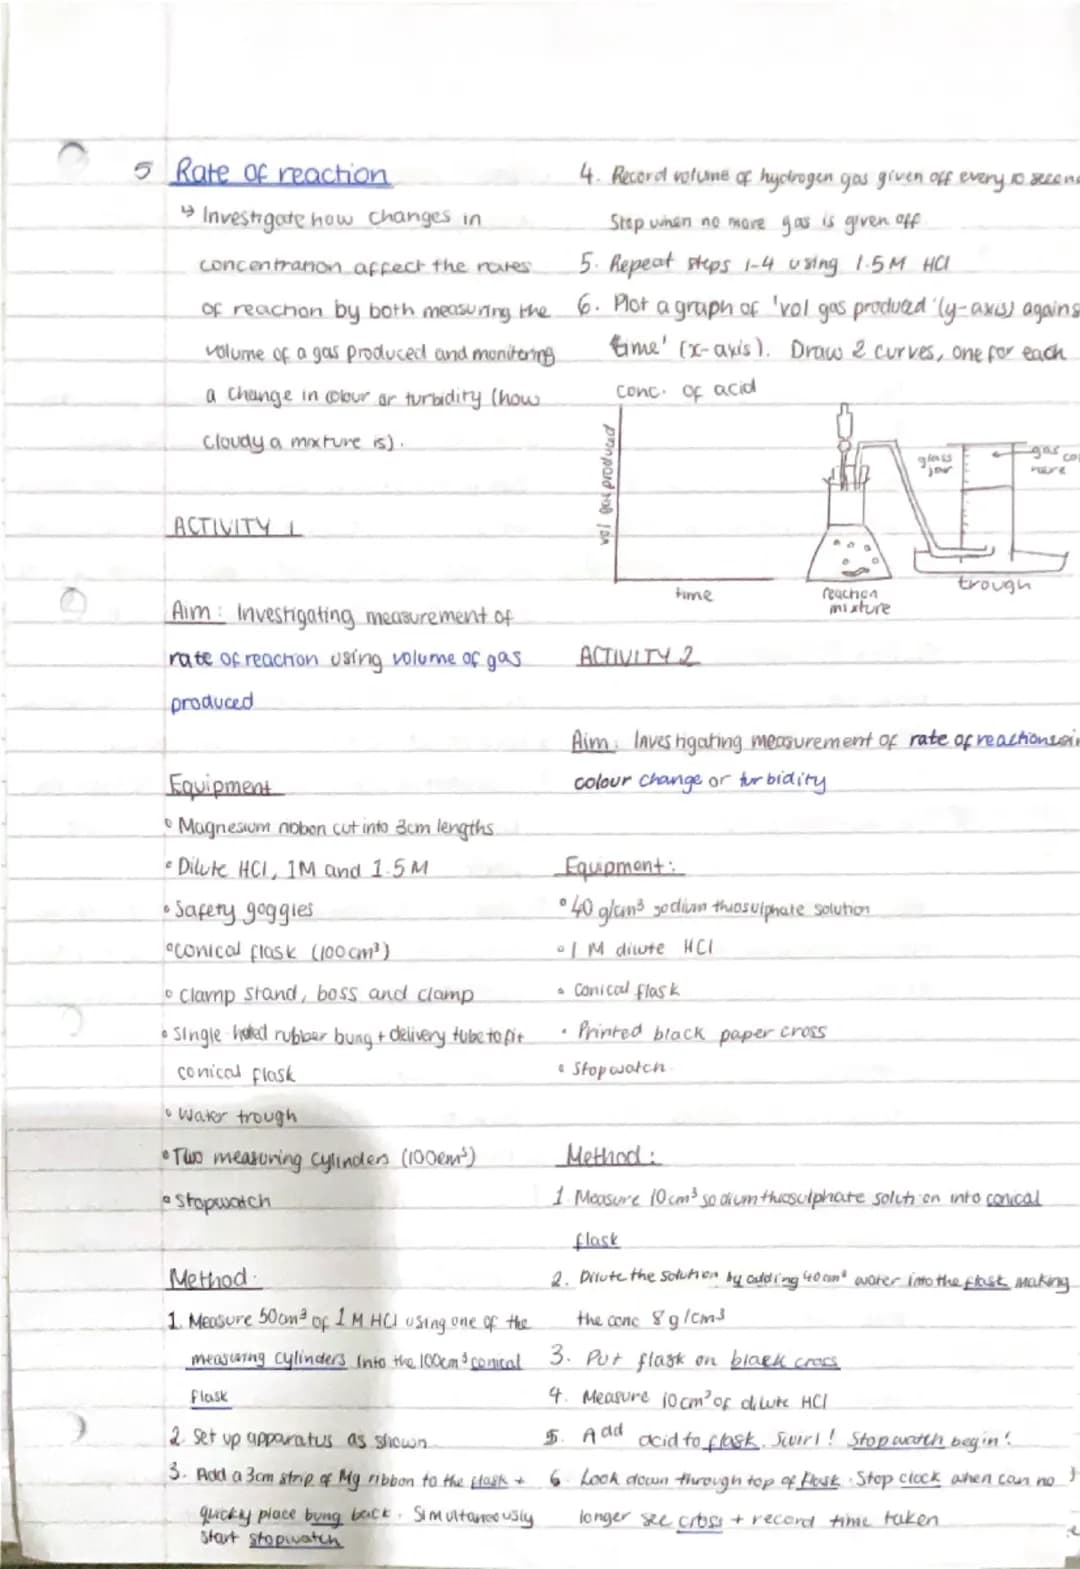 5 Rate of reaction
↳ Investigate how changes in
concentration affect the rates
of reaction by both measuring the
volume of a gas produced and monitering
a change in colour or turbidity (how
cloudy a mixture is).
ACTIVITY 1
Aim: Investigating measurement of
rate of reaction using volume of gas
produced
Equipment
• Magnesium ribbon cut into 3cm lengths
• Dilute HCl, 1M and 1.5M
• Safety goggles
• conical flask (100cm³)
• Clamp stand, boss and clamp
• Single holed rubber bung + delivery tube to fit
conical flask
• Water trough
• Two measuring cylinders (100cm³)
• Stopwatch
Method:
1. Measure 50cm³ of 1M HCl using one of the
measuring cylinders into the 100cm³ conical
flask
2. Set up apparatus as shown
3. Add a 3cm strip of Mg ribbon to the flask +
quickly place bung back. Simultaneously
start stopwatch
4. Record volume of hydrogen gas given off every 10
Stop when no more gas is given off
5. Repeat steps 1-4 using 1.5M HCl
6. Plot a graph of 'vol gas produced' (y-axis)
time' (x-axis). Draw 2 curves, one for each
conc. of acid
vol gas produced
time
reaction
mixture
glass
jar
gas
trough
ACTIVITY 2
Aim: Investigating measurement of rate of reaction
colour change or turbidity
Equipment:
• 40 g/cm³ sodium thiosulphate solution
• 1 M dilute HCl
• Conical flask
• Printed black paper cross
• Stopwatch
Method:
1. Measure 10cm³ sodium thiosulphate solution into conical
flask
2. Dilute the solution by adding 40cm³ water into the flask making
the conc 8g/cm³
3. Put flask on black cross
4. Measure 10cm³ of dilute HCl
5. Add acid to flask. Swirl! Stopwatch begin!
6. Look down through top of flask. Stop clock when can no
longer see cross + record time taken